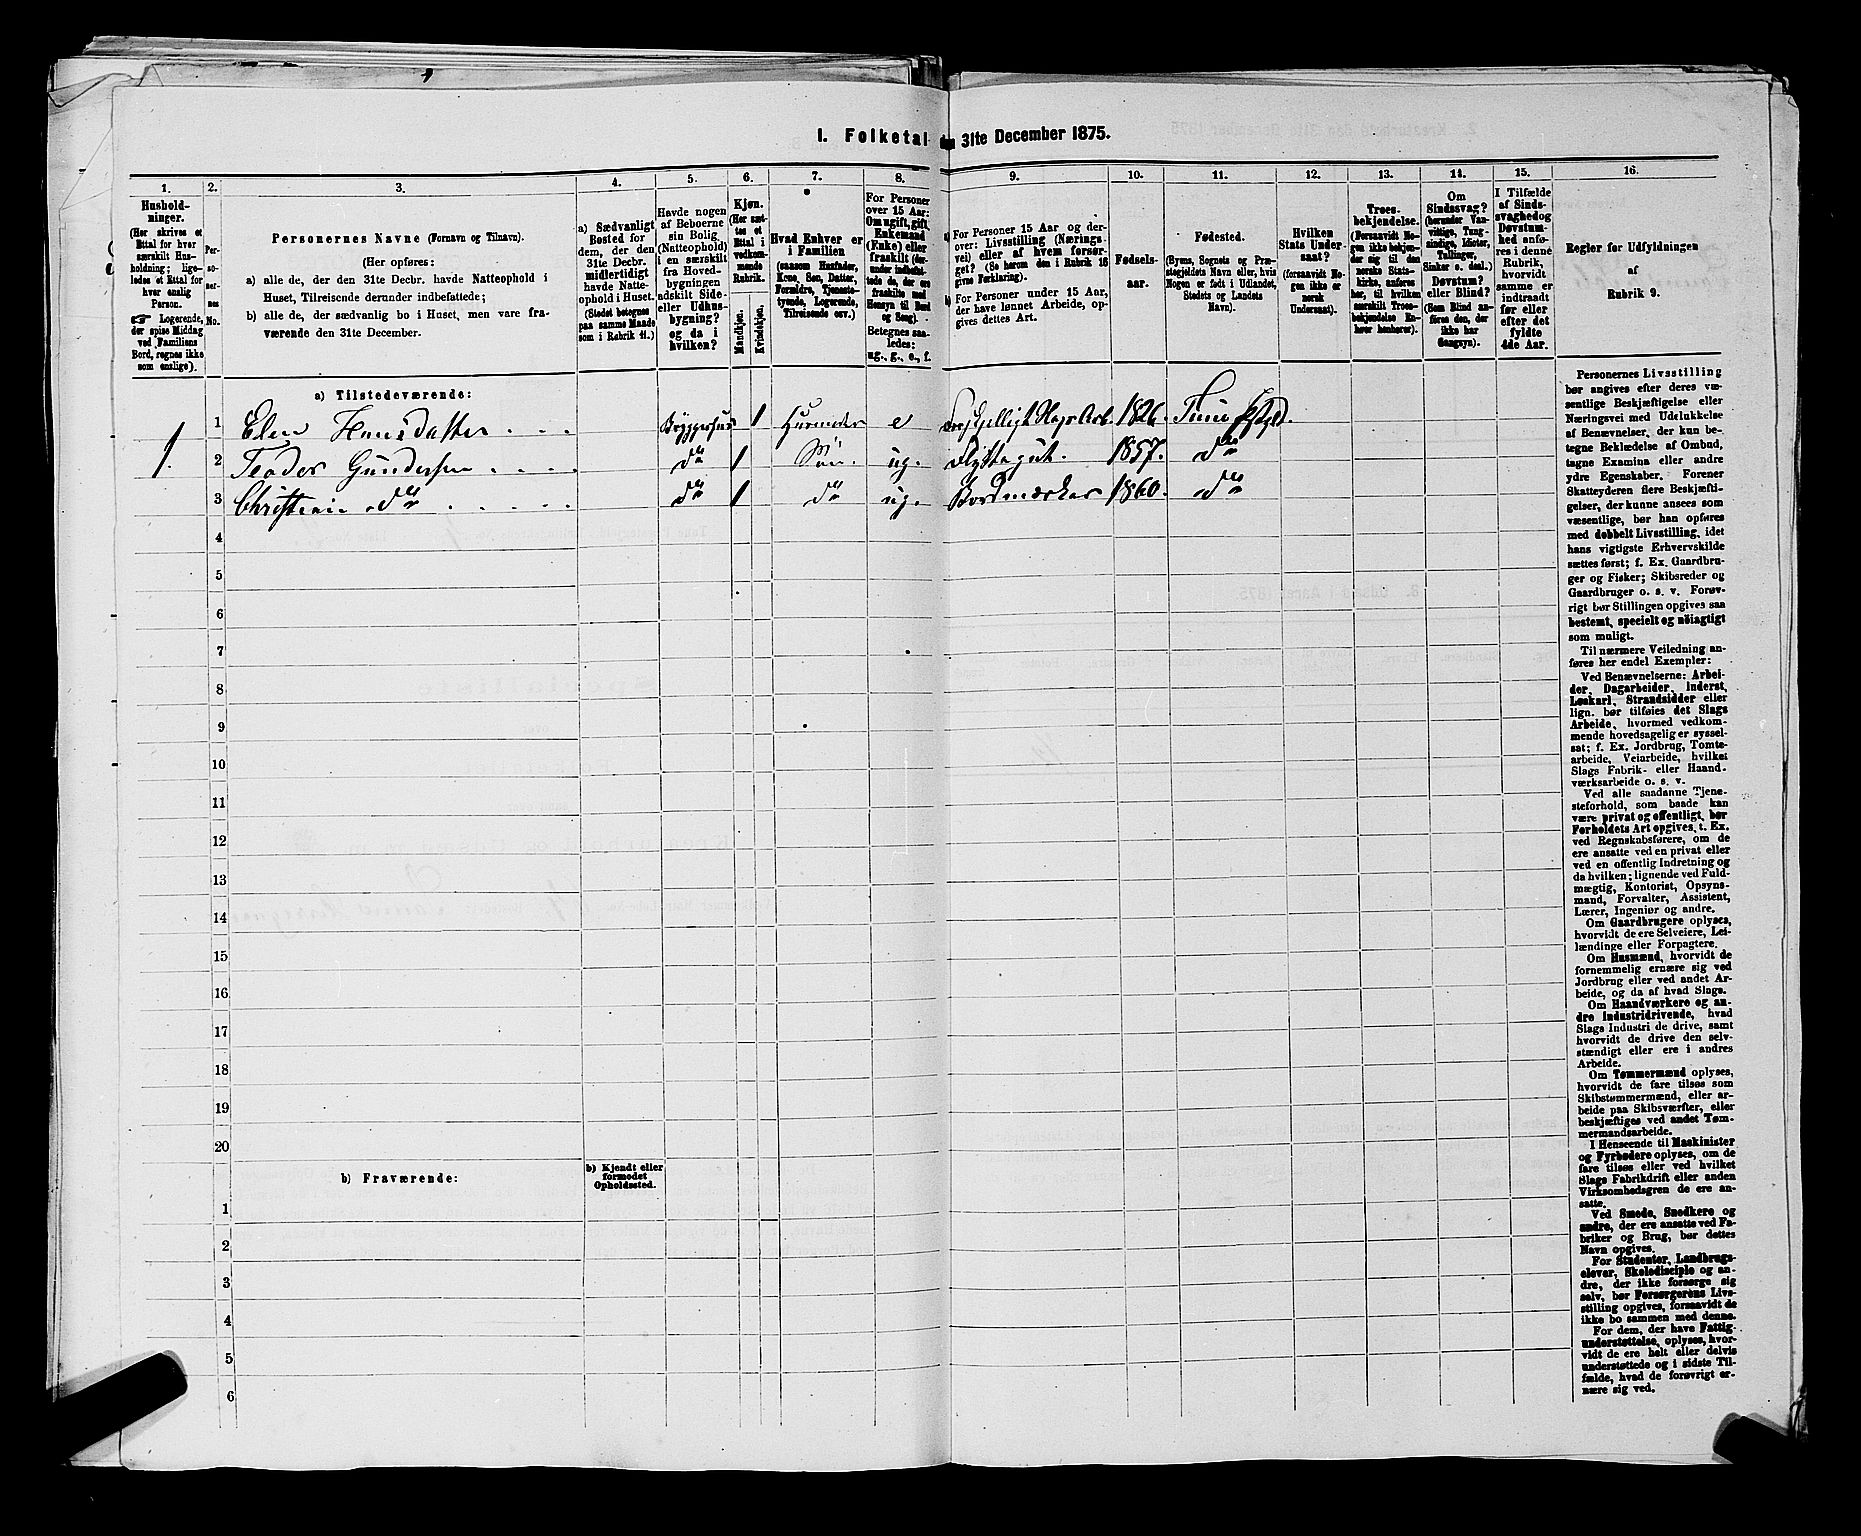 I. Folketal den 31te December 1875.
1.
2.
3.
4.
5.
6.
7.
8.
9.
10.
11.
12.
13.
14.
15.
16.
Hushold-
ninger.
(Her skrives et
Ettal for hver
særskilt Hus-
holdning; lige-
ledes et Ettal for
hver enslig
Person.
Logerende,
der spise Middag
ved Familiens
Bord, regnes ikke
som enslige).
Per-
so-
ner-
nes
No.
Personernes Navne (Fornavn og Tilnavn).
(Her opføres:
a) alle de, der den 31te Decbr. havde Natteophold i
Huset, Tilreisende derunder indbefattede;
b) alle de, der sædvanlig bo i Huset, men vare fra-
værende den 31te December.
a) Sædvanligt
Bosted for
dem, der den
31te Decbr.
midlertidigt
havde Natte-
ophold i Huset.
(Stedet betegnes
paa samme Maade
som i Rubrik 11.)
Havde nogen
af Beboerne
sin Bolig
(Natteophold)
i en særskilt
fra Hoved-
bygningen
adskilt Side-
eller Udhus-
bygning?
og da i
hvilken?
Kjøn.
(Her sæt-
tes et
Ettal i
vedkom-
mende
Rubrik.
Mandkjøn.
Kvindekjøn.
Hvad Enhver er
i Familien
(saasom Husfader,
Kone, Søn, Datter,
Forældre, Tjeneste-
tyende, Logerende,
Tilreisende osv.)
For Personer
over 15 Aar:
Om ugift, gift,
Enkemand
(Enke) eller
fraskilt (der-
under indbefat-
tede de, der ere
fraskilte med
Hensyn til Bord
og Seng).
Betegnes saa-
ledes:
ug., g., e., f.
a) For Personer 15 Aar og der-
over: Livsstilling (Nærings-
vei) eller af hvem forsør-
get? (Se herom den i Rubrik 16
givne Forklaring).
b) For Personer under 15 Aar,
der have lønnet Arbeide, op-
gives dettes Art.
Fødsels-
aar.
Fødested.
(Byens, Sognets og Præ-
stegjeldets Navn eller, hvis
Nogen er født i Udlandet,
Stedets og Landets
Navn).
Hvilken
Stats Under-
saat?
(forsaavidt No-
gen ikke er
norsk
Undersaat).
Troes-
bekjendelse.
(Forsaavidt No-
gen ikke bekjen-
der sig til den
norske Stats-
kirke, anføres
her, til hvilken
særskilt Troes-
bekjendelse En-
hver henhører).
Om
Sindssvag?
(herunder Van-
vittige, Tung-
sindige, Idioter,
Tullinger,
Sinker o. desl.)
Døvstum?
eller Blind?
(Som Blind an-
føres den, der
ikke har
Gangsyn).
I Tilfælde
af Sinds-
svaghed og
Døvstum-
hed anfø-
res i denne
Rubrik,
hvorvidt
samme er
indtraadt
før eller
efter det
fyldte
4de Aar.
Regler for Udfyldningen
af
Rubrik 9.
a) Tilstedeværende:
1 Elen Hansdatter . . . Bryggerhus 1 Husmoder e 1826. Tune
1. 2 Teodor Gundersen . . . . do 1 Søn. ug. Flyttegut. 1857. do
3 Christian do . . . . . do 1 do ug. 1860. do
4
5
6
7
8
9
10
11
12
13
14
15
16
17
18
19
20
b) Fraværende:
b) Kjendt eller
formodet
Opholdssted.
1
2
3
4
5
6
Personernes Livsstilling
bør angives efter deres væ-
sentlige Beskjæftigelse eller
Næringsvei med Udelukkelse
af Benævnelser, der kun be-
tegne Beklædelse af Ombud,
tagne Examina eller andre
ydre Egenskaber. Forener
Skatteyderen flere Beskjæfti-
gelser, der kunne ansees som
væsentlige, bør han opføres
med dobbelt Livsstilling, idet
hans vigtigste Erhvervskilde
sættes først; f. Ex. Gaardbru-
ger og Fisker; Skibsreder og
Gaardbruger o. s. v. Forøv-
rigt bør Stillingen opgives saa
bestemt, specielt og nøiagtigt
som muligt.
Til nærmere Veiledning an-
føres her endel Exempler:
Ved Benævnelserne: Arbei-
der, Dagarbeider, Inderst,
Løskarl, Strandsidder eller
lign. bør tilføies det Slags
Arbeide, hvormed vedkom-
mende hovedsagelig er syssel-
sat; f. Ex. Jordbrug, Tomte-
arbeide, Veiarbeide, hvilket
Slags Fabrik- eller Haand-
værksarbeide o. s. v.
Ved alle saadanne Tjene-
steforhold, som baade kan
være privat og offentligt, bør
Forholdets Art opgives, t. Ex.
ved Regnskabsførere, om de
ere ansatte ved en privat eller
ved en offentlig Indretning og
da hvilken; lignende ved Fuld-
mægtig, Kontorist, Opsyns-
mand, Forvalter, Assistent,
Lærer, Ingeniør og andre.
Om Gaardbrugere oplyses,
hvorvidt de ere Selveiere, Lei-
lændinge eller Forpagtere.
Om Husmænd, hvorvidt de
fornemmelig ernære sig ved
Jordbrug eller ved andet Ar-
beide, og da af hvad Slags.
Om Haandværkere og an-
dre industridrivende, hvad
Slags Industri de drive, samt
hvorvidt de drive den selv-
stændigt eller ere i andres
Arbeide.
Om Tømmermænd oplyses,
hvorvidt de fare tilsøs som
Skibstømmermænd, eller ar-
beide paa Skibsværfter, eller
beskjæftiges ved andet Tøm-
mermandsarbeide.
I Henseende til Maskinister
og Fyrbødere oplyses, om de
fare tilsøs eller ved hvilket
Slags Fabrikdrift eller anden
Virksomhedsgren de ere an-
satte.
Ved Smede, Snedkere og
andre, der ere ansatte ved Fa-
briker og Brug, bør dettes
Navn opgives.
For Studenter, Landbrugs-
elever, Skoledisciple og an-
dre, der ikke forsørge sig
selv, bør Forsørgerens Livs-
stilling opgives, forsaavidt de
ikke bo sammen med denne.
For dem, der have Fattig-
understøttelse, oplyses, hvor-
vidt de ere helt eller delvis
understøttede og i sidste Til-
fælde, hvad de forøvrigt er-
nære sig ved.